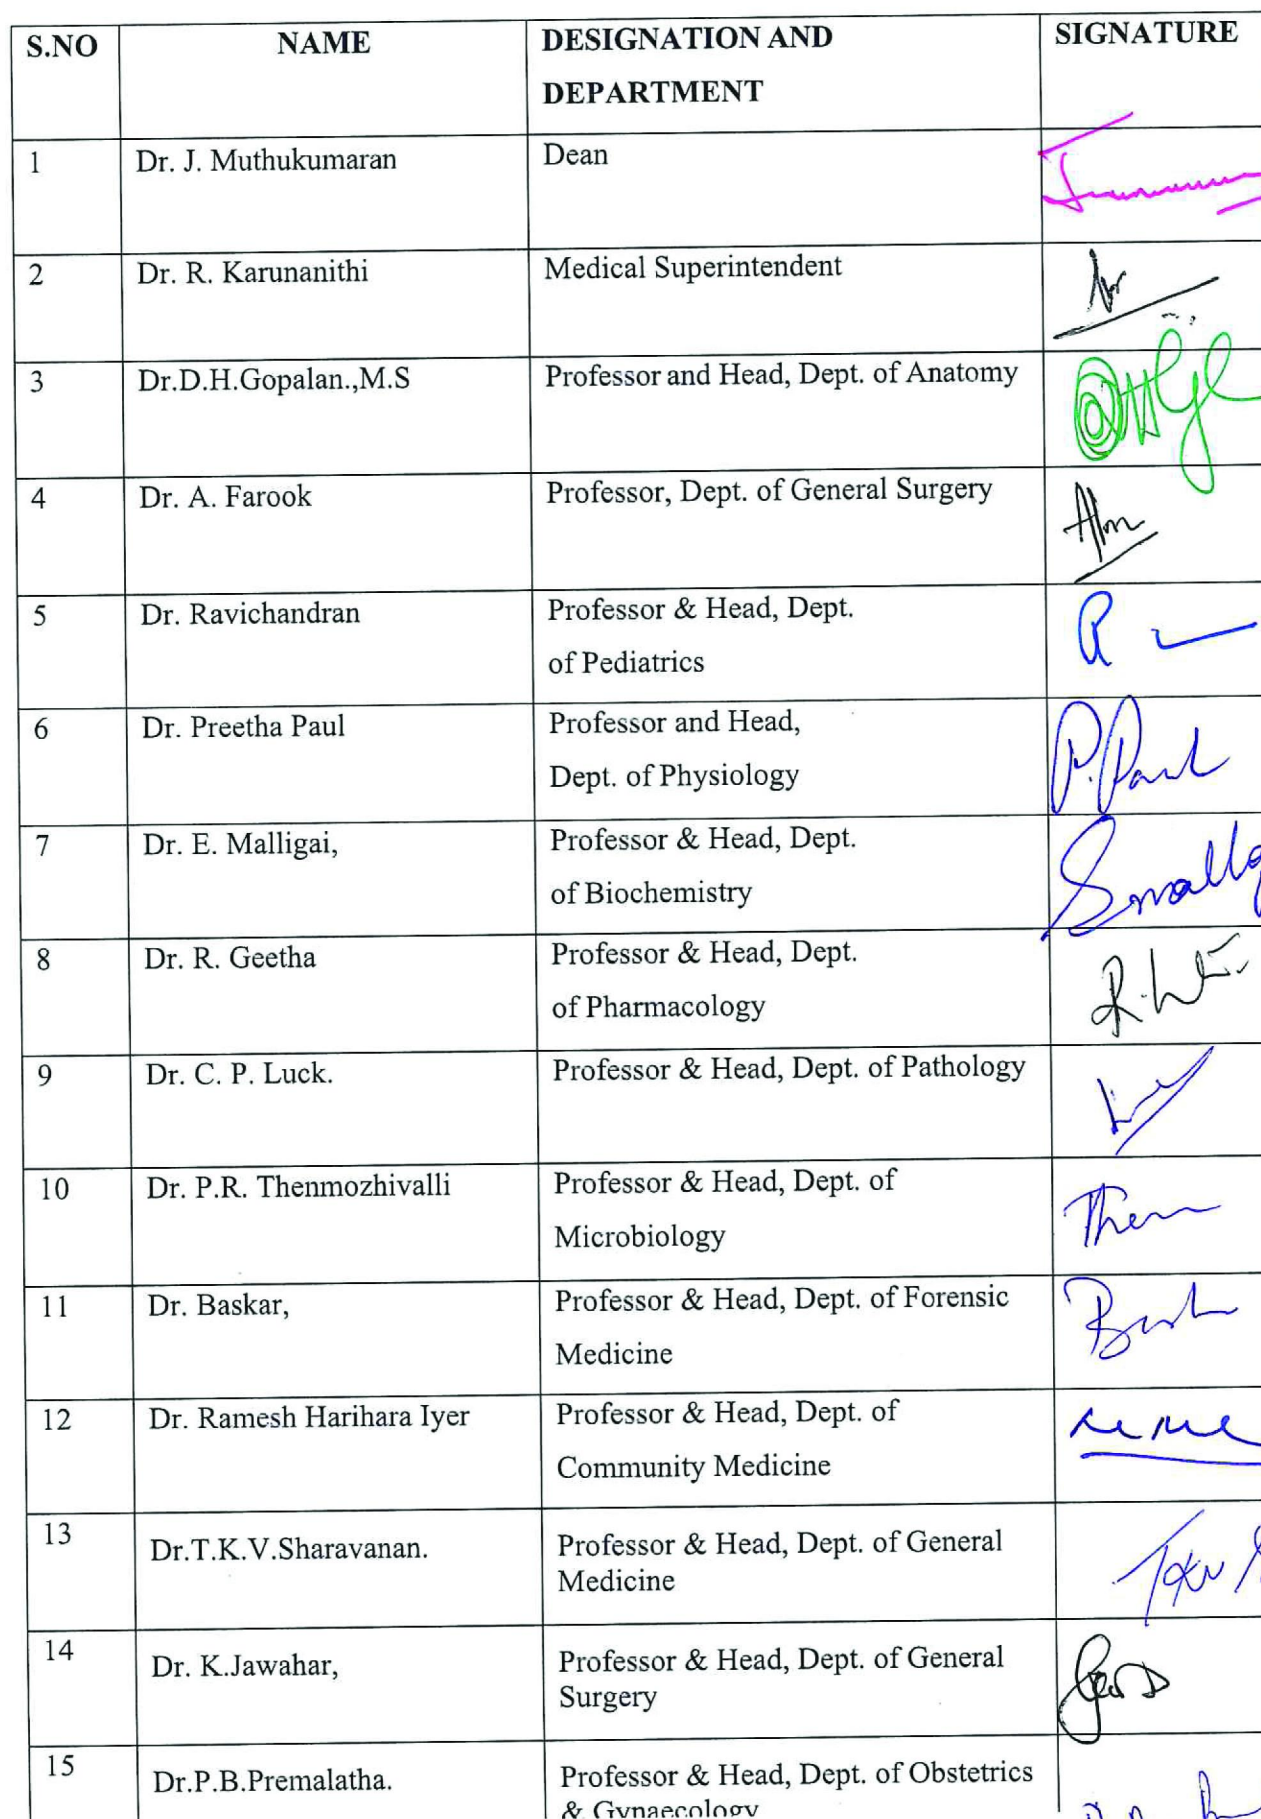 S.NO NAME DESIGNATION AND SIGNATURE
DEPARTMENT
1 Dr. J. Muthukumaran Dean
2 Dr. R. Karunanithi Medical Superintendent
3 Dr.D.H.Gopalan.,M.S Professor and Head, Dept. of Anatomy
4 Dr. A. Farook Professor, Dept. of General Surgery
5 Dr. Ravichandran Professor & Head, Dept.
of Pediatrics
6 Dr. Preetha Paul Professor and Head,
Dept. of Physiology
P.Paul
7 Dr. E. Malligai, Professor & Head, Dept.
of Biochemistry
8 Dr. R. Geetha Professor & Head, Dept.
of Pharmacology
9 Dr. C. P. Luck. Professor & Head, Dept. of Pathology
10 Dr. P.R. Thenmozhivalli Professor & Head, Dept. of
Microbiology
11 Dr. Baskar, Professor & Head, Dept. of Forensic
Medicine
12 Dr. Ramesh Harihara Iyer Professor & Head, Dept. of
Community Medicine
13 Dr.T.K.V.Sharavanan. Professor & Head, Dept. of General
Medicine
14 Dr. K.Jawahar, Professor & Head, Dept. of General
Surgery
15 Dr.P.B.Premalatha. Professor & Head, Dept. of Obstetrics
& Gynaecology